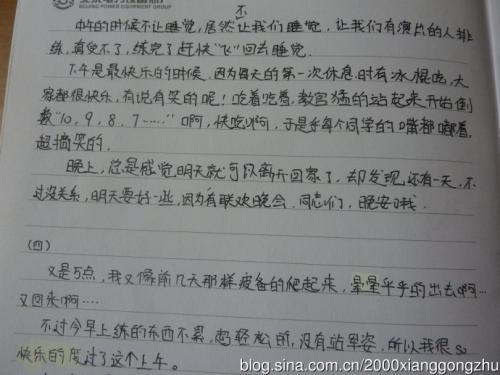 BEIJING POWER EQUIPMENT GROUP
不
中午的时候不让睡觉,居然让我们睡觉,让我们有演出的人排
练,真受不了,练完了赶快“飞”回去睡觉.
下午是最快乐的时候,因为每天的第一次休息时有冰棍吃,大
家都很快乐,有说有笑的呢!吃着吃着,教官猛的站起来开始倒
数“10,9,8,7……”啊,快吃啊,于是乎每个同学的嘴都嘟着,
超搞笑的.
晚上,总是感觉明天就可以离开回家了,却发现,还有一天,不
过没关系,明天要好一些,因为有联欢晚会.同志们,晚安哦.
(四)
又是5点,我又像前几天那样疲备的爬起来,晕晕乎乎的出去啊…
又回来啊….
不过今早上练的东西不累,超轻松的,没有站军姿,所以我很so
快乐的度过了这个上午。
blog.sina.com.cn/2000xianggongzhu